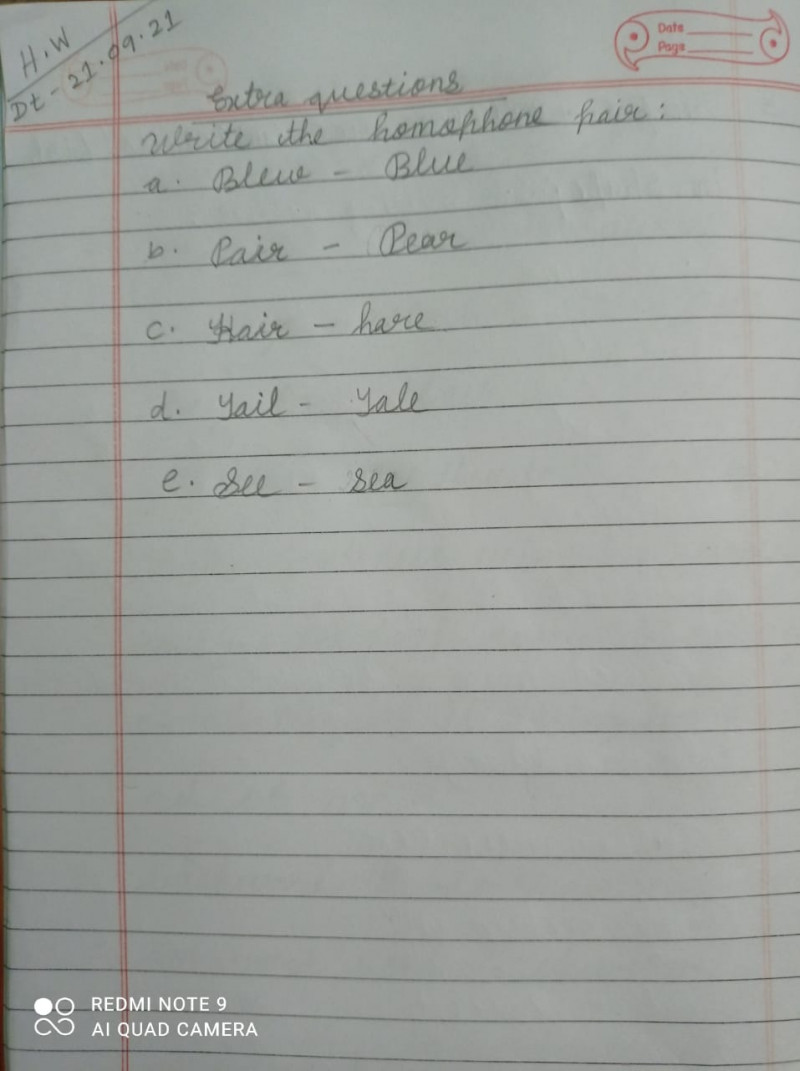 H.W
Dt - 21.09.21
Date
Page
Extra questions
Write the homophone pair:
a. Blew - Blue
b. Pair - Pear
c. Hair - hare
d. Tail - Tale
e. See - Sea
REDMI NOTE 9
AI QUAD CAMERA